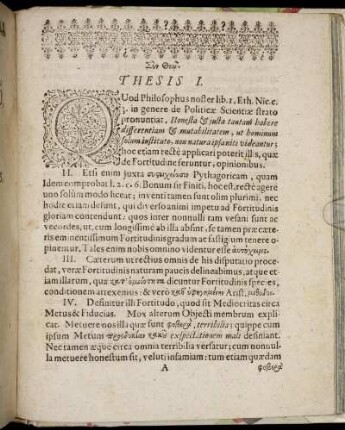 Σὺν Θεῷ.
THESIS I.
QUod Philosophus noster lib. 1, Eth. Nic. c.
in genere de Politicæ Scientiæ strato
pronuntiat, Honesta & justa tantam habere
differentiam & mutabilitatem, ut hominum
solum instituto, non natura ipsa nite videantur;
hoc etiam rectè applicari poterit illis, quæ
de Fortitudine feruntur, opinionibus.
II. Etsi enim juxta Pythagoricam, quam
Idem comprobat l. 2. c. 6. Bonum sit Finiti, hoc est, rectè agere
uno solùm modo liceat; inventi tamen sunt olim plurimi, nec
hodie etiam desunt, qui diverso animi impetu ad Fortitudinis
gloriam contendunt: quos inter nonnulli tam vesani sunt ac
vecordes, ut, cum longissimè ab illa absint, se tamen præ cæte-
ris eminentissimum Fortitudinis gradum ac fastigium tenere o-
pinentur. Tales enim nobis omnino videntur esse
III. Cæterum ut rectius omnis de his disputatio proce-
dat, veræ Fortitudinis naturam paucis delineabimus, atque et-
iam illarum, quæ καθ' ὁμοιότητα dicuntur Fortitudinis species,
conditionem annexemus: & verò Arist.
IV. Definitur illi Fortitudo, quod sit Mediocritas circa
Metus & Fiducias. Mox alterum Objecti membrum expli-
cat. Metuere nos illa quæ sunt φοβερὰ, terribilia: quippe cum
ipsum Metum προσδοκίαν κακοῦ exspectationem mali definiant.
Nec tamen æque circa omnia terribilia versatur; cum nonnul-
la metuere honestum sit, veluti infamiam: tum etiam quædam
A φοβερὰ